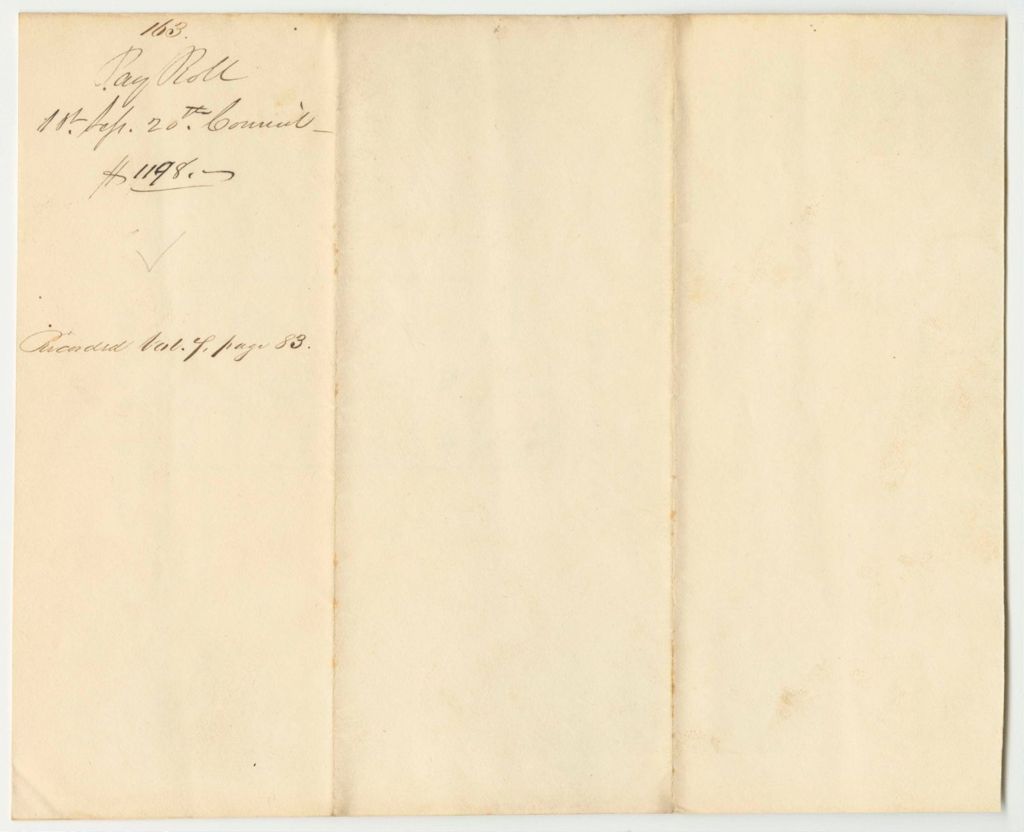 163.
Pay Roll
1st. Sess. 20th. Council –
$1198.–
Recorded Vol. 7, page 83.